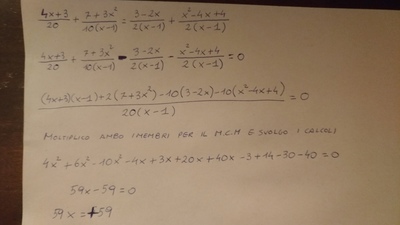 4x+3/20 + 7+3x²/10(x-1) = 3-2x/2(x-1) + x²-4x+4/2(x-1)
4x+3/20 + 7+3x²/10(x-1) - 3-2x/2(x-1) - x²-4x+4/2(x-1) = 0
(4x+3)(x-1)+2(7+3x²)-10(3-2x)-10(x²-4x+4)/20(x-1) = 0
MOLTIPLICO AMBO I MEMBRI PER IL M.C.M E SVOLGO I CALCOLI
4x²+6x²-10x²-4x+3x+20x+40x-3+14-30-40=0
59x-59=0
59x=+59